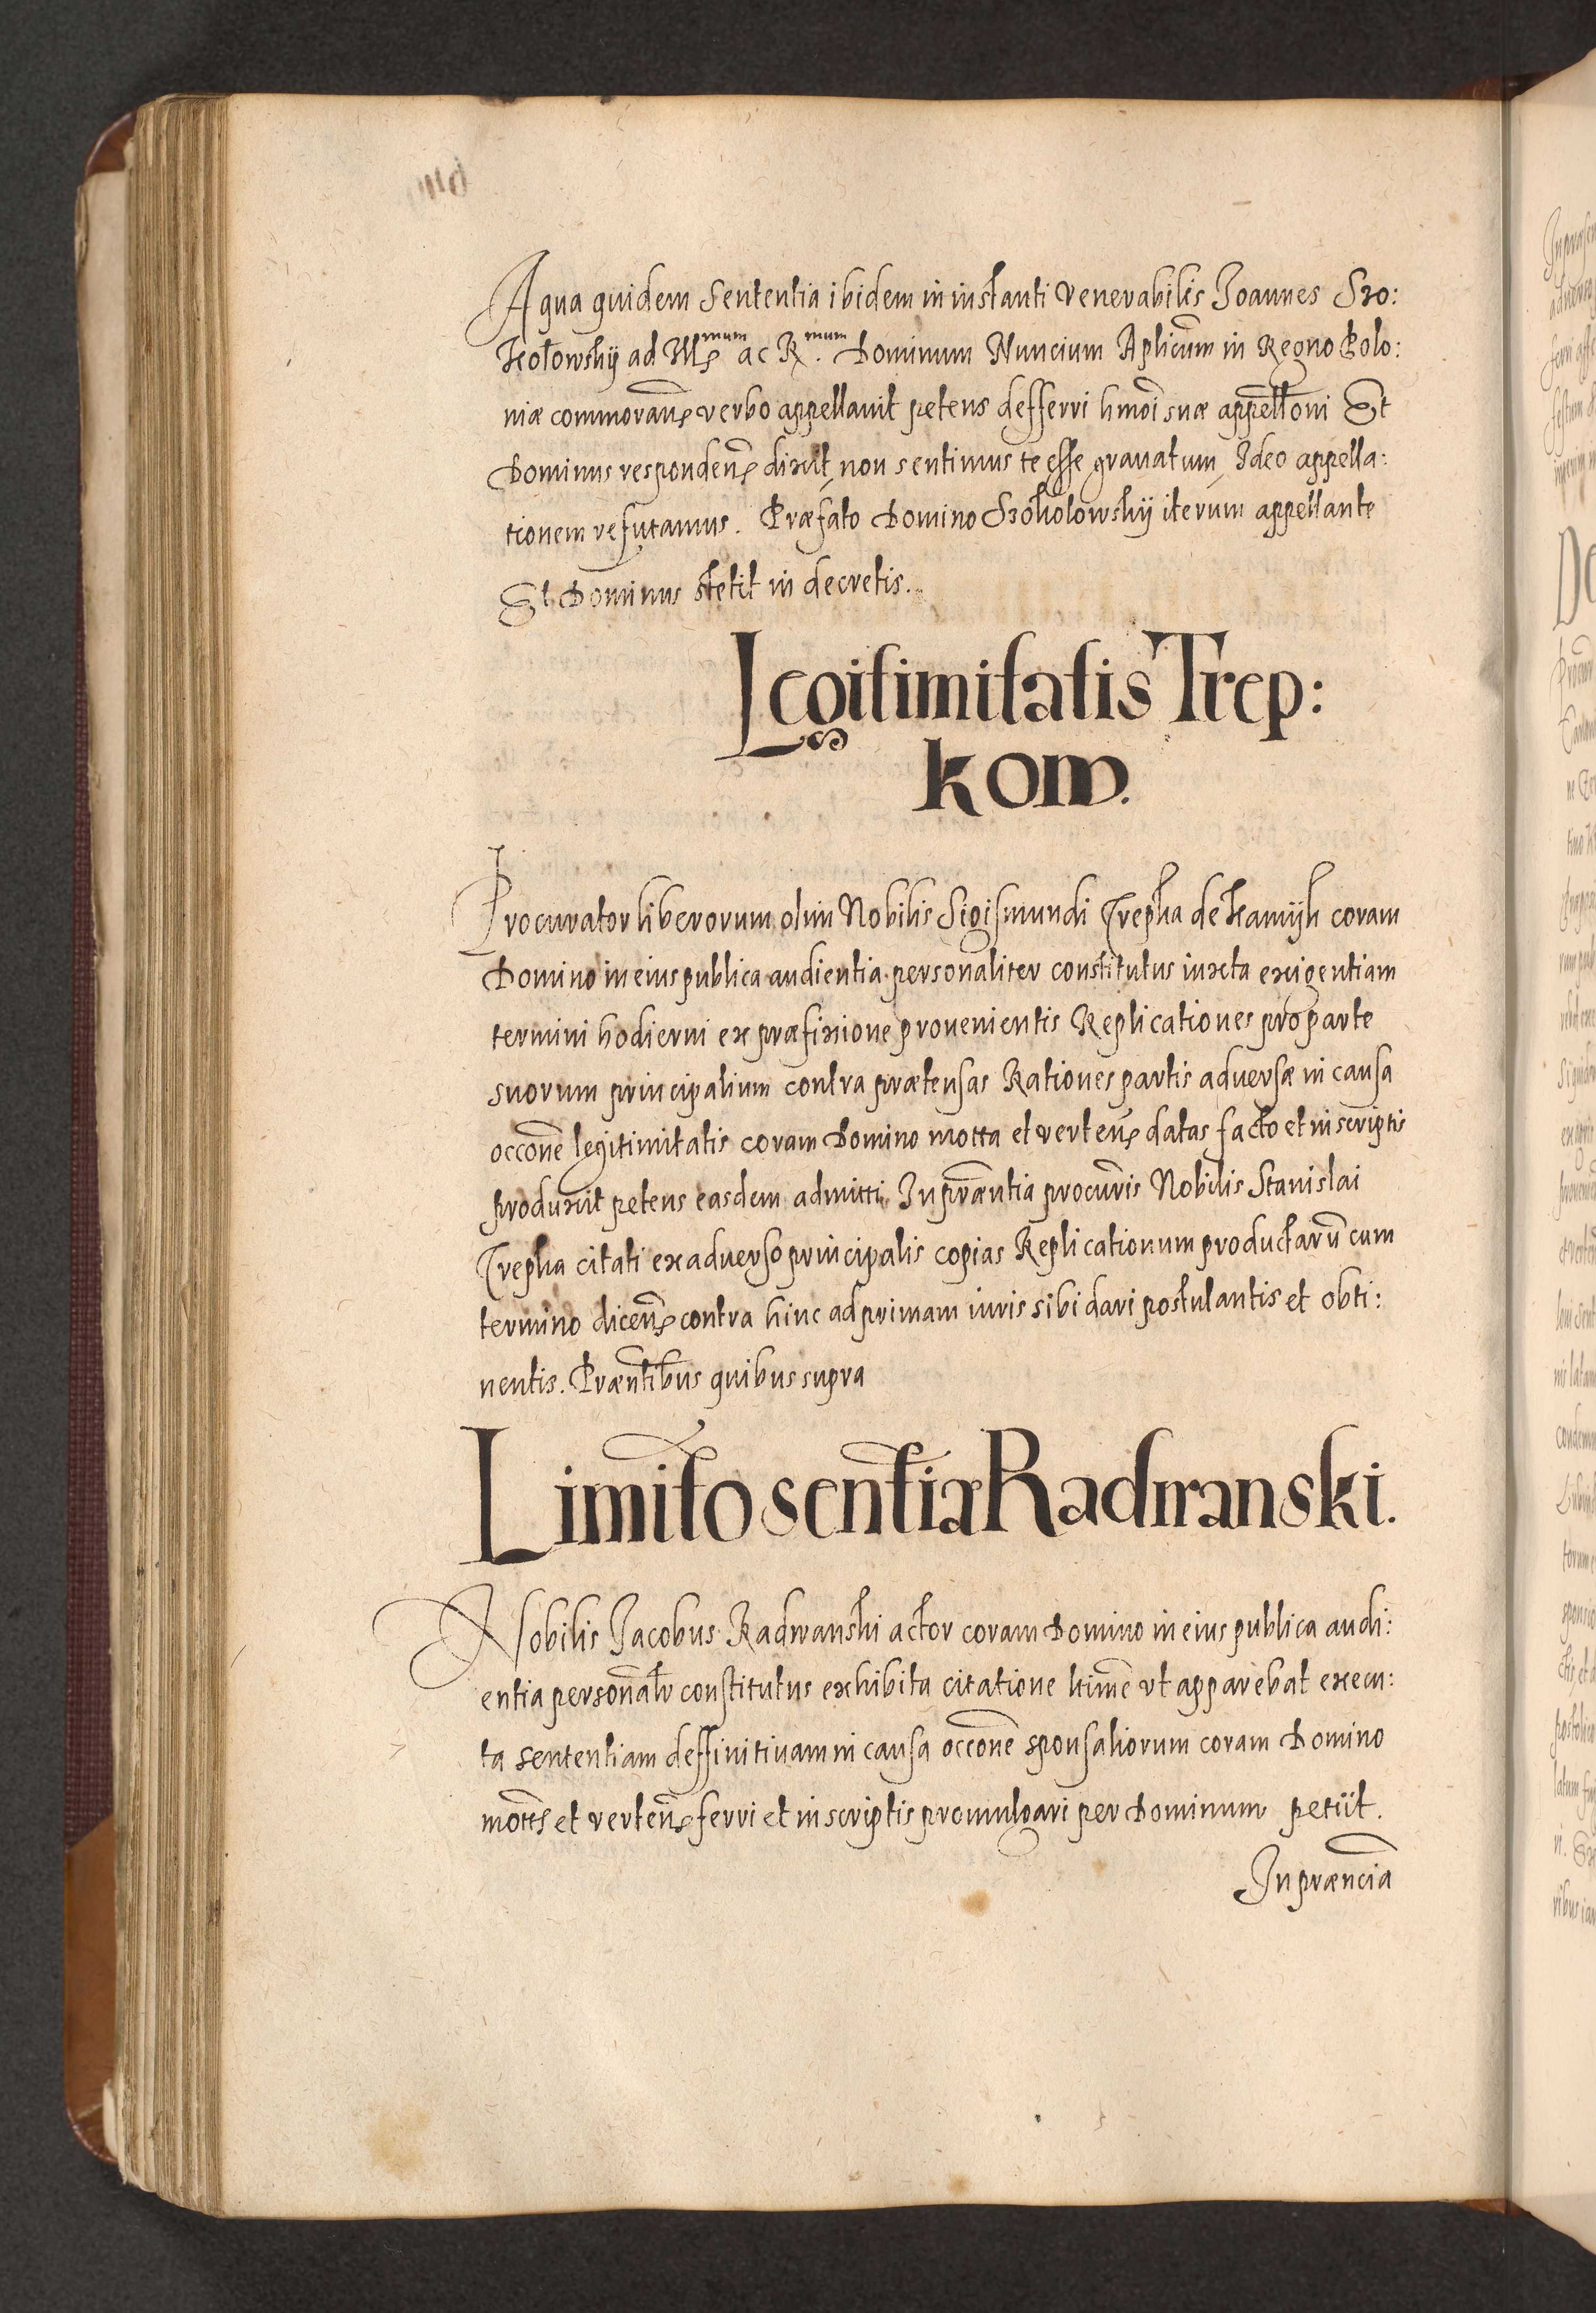 A qua quidem Sententia ibidem in instanti Venerabilis Joannes Szo:
kolowskÿ ad Illᵐᵘᵐ ac R.ᵐᵘᵐ Dominum Nuncium Aplicūm in Regno Polo:
niæ commorañ verbo appellavit petens defferri hmōi suæ appellōni Et
Dominus respondeñ dixit, non sentimus te esse gravatum, Ideo appella:
tionem refutamus. Præfato Domino Szokolowskÿ iterum appellante
Et Dominus stetit in decretis.
Legitimitatis Trep:
kom.
Procurator liberorum olim Nobilis Sigismundi Trepka de Kamÿk coram
Domino in eius publica audientia personaliter constitutus iuxta exigentiam
termini hodierni ex præfixione provenientis Replicationes pro parte
suorum principalium contra prætensas Rationes partis adversæ in causa
occōne legitimitatis coram Domino motta et verteñ datas facto et in scriptis
produxit petens easdem admitti. In præntia procuris Nobilis Stanislai
Trepka citati ex adverso principalis copias Replicationum productarū cum
termino diceñ contra hinc ad primam iuris sibi dari postulantis et obti:
nentis. Præntibus quibus supra
Limito sentiæ Radwanski.
Nobilis Jacobus Radwanski actor coram Domino in eius publica audi:
entia personalr constitutus exhibita citatione lrīme vt apparebat execu:
ta sententiam deffinitivam in causa occōne sponsaliorum coram Domino
motæ et verteñ ferri et in scriptis promulgari per Dominum petiit.
In præncia